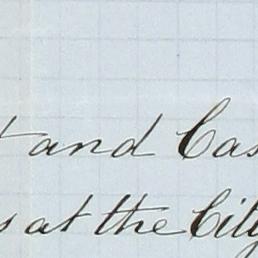 and Cas
s at the City